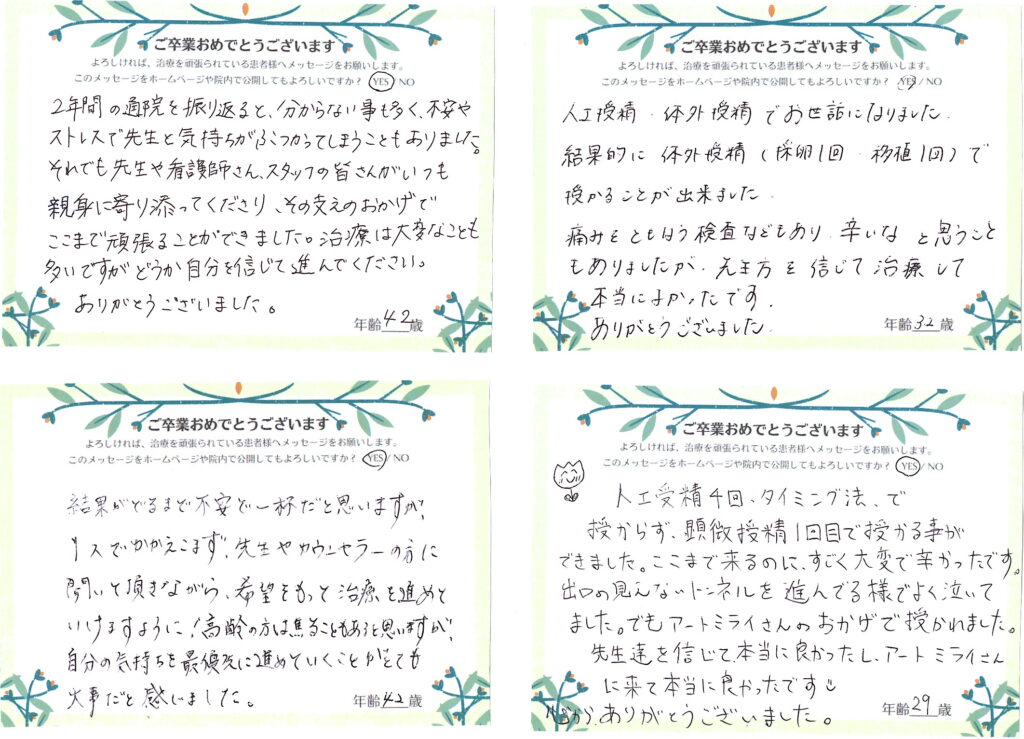 ご卒業おめでとうございます
よろしければ、治療を頑張られている患者様へメッセージをお願いします。
このメッセージをホームページや院内で公開してもよろしいですか? YES / NO
2年間の通院を振り返ると、分からない事も多く、不安や
ストレスで先生と気持ちがぶつかってしまうこともありました。
それでも先生や看護師さん、スタッフの皆さんがいつも
親身に寄り添ってくださり、その支えのおかげで
ここまで頑張ることができました。治療は大変なことも
多いですがどうか自分を信じて進んでください。
ありがとうございました。
年齢 42 歳
ご卒業おめでとうございます
よろしければ、治療を頑張られている患者様へメッセージをお願いします。
このメッセージをホームページや院内で公開してもよろしいですか? YES / NO
人工授精、体外授精でお世話になりました.
結果的に体外授精(採卵1回.移植1回)で
授かることが出来ました.
痛みをともなう検査などもあり.辛いなと思うこと
もありましたが.先生方を信じて治療して
本当によかったです.
ありがとうございました.
年齢 32 歳
ご卒業おめでとうございます
よろしければ、治療を頑張られている患者様へメッセージをお願いします。
このメッセージをホームページや院内で公開してもよろしいですか? YES / NO
結果がでるまで不安で一杯だと思いますが、
1人でかかえこまず、先生やカウンセラーの方に
聞いて頂きながら、希望をもって治療を進めて
いけますように!高齢の方は焦ることもあると思いますが、
自分の気持ちを最優先に進めていくことがとても
大事だと感じました。
年齢 42 歳
ご卒業おめでとうございます
よろしければ、治療を頑張られている患者様へメッセージをお願いします。
このメッセージをホームページや院内で公開してもよろしいですか? YES / NO
人工受精4回、タイミング法、で
授からず、顕微授精1回目で授かる事が
できました。ここまで来るのに、すごく大変で辛かったです。
出口の見えないトンネルを進んでる様でよく泣いて
ました。でもアートミライさんのおかげで授かれました。
先生達を信じて、本当に良かったし、アートミライさん
に来て本当に良かったです
心から、ありがとうございました。
年齢 29 歳